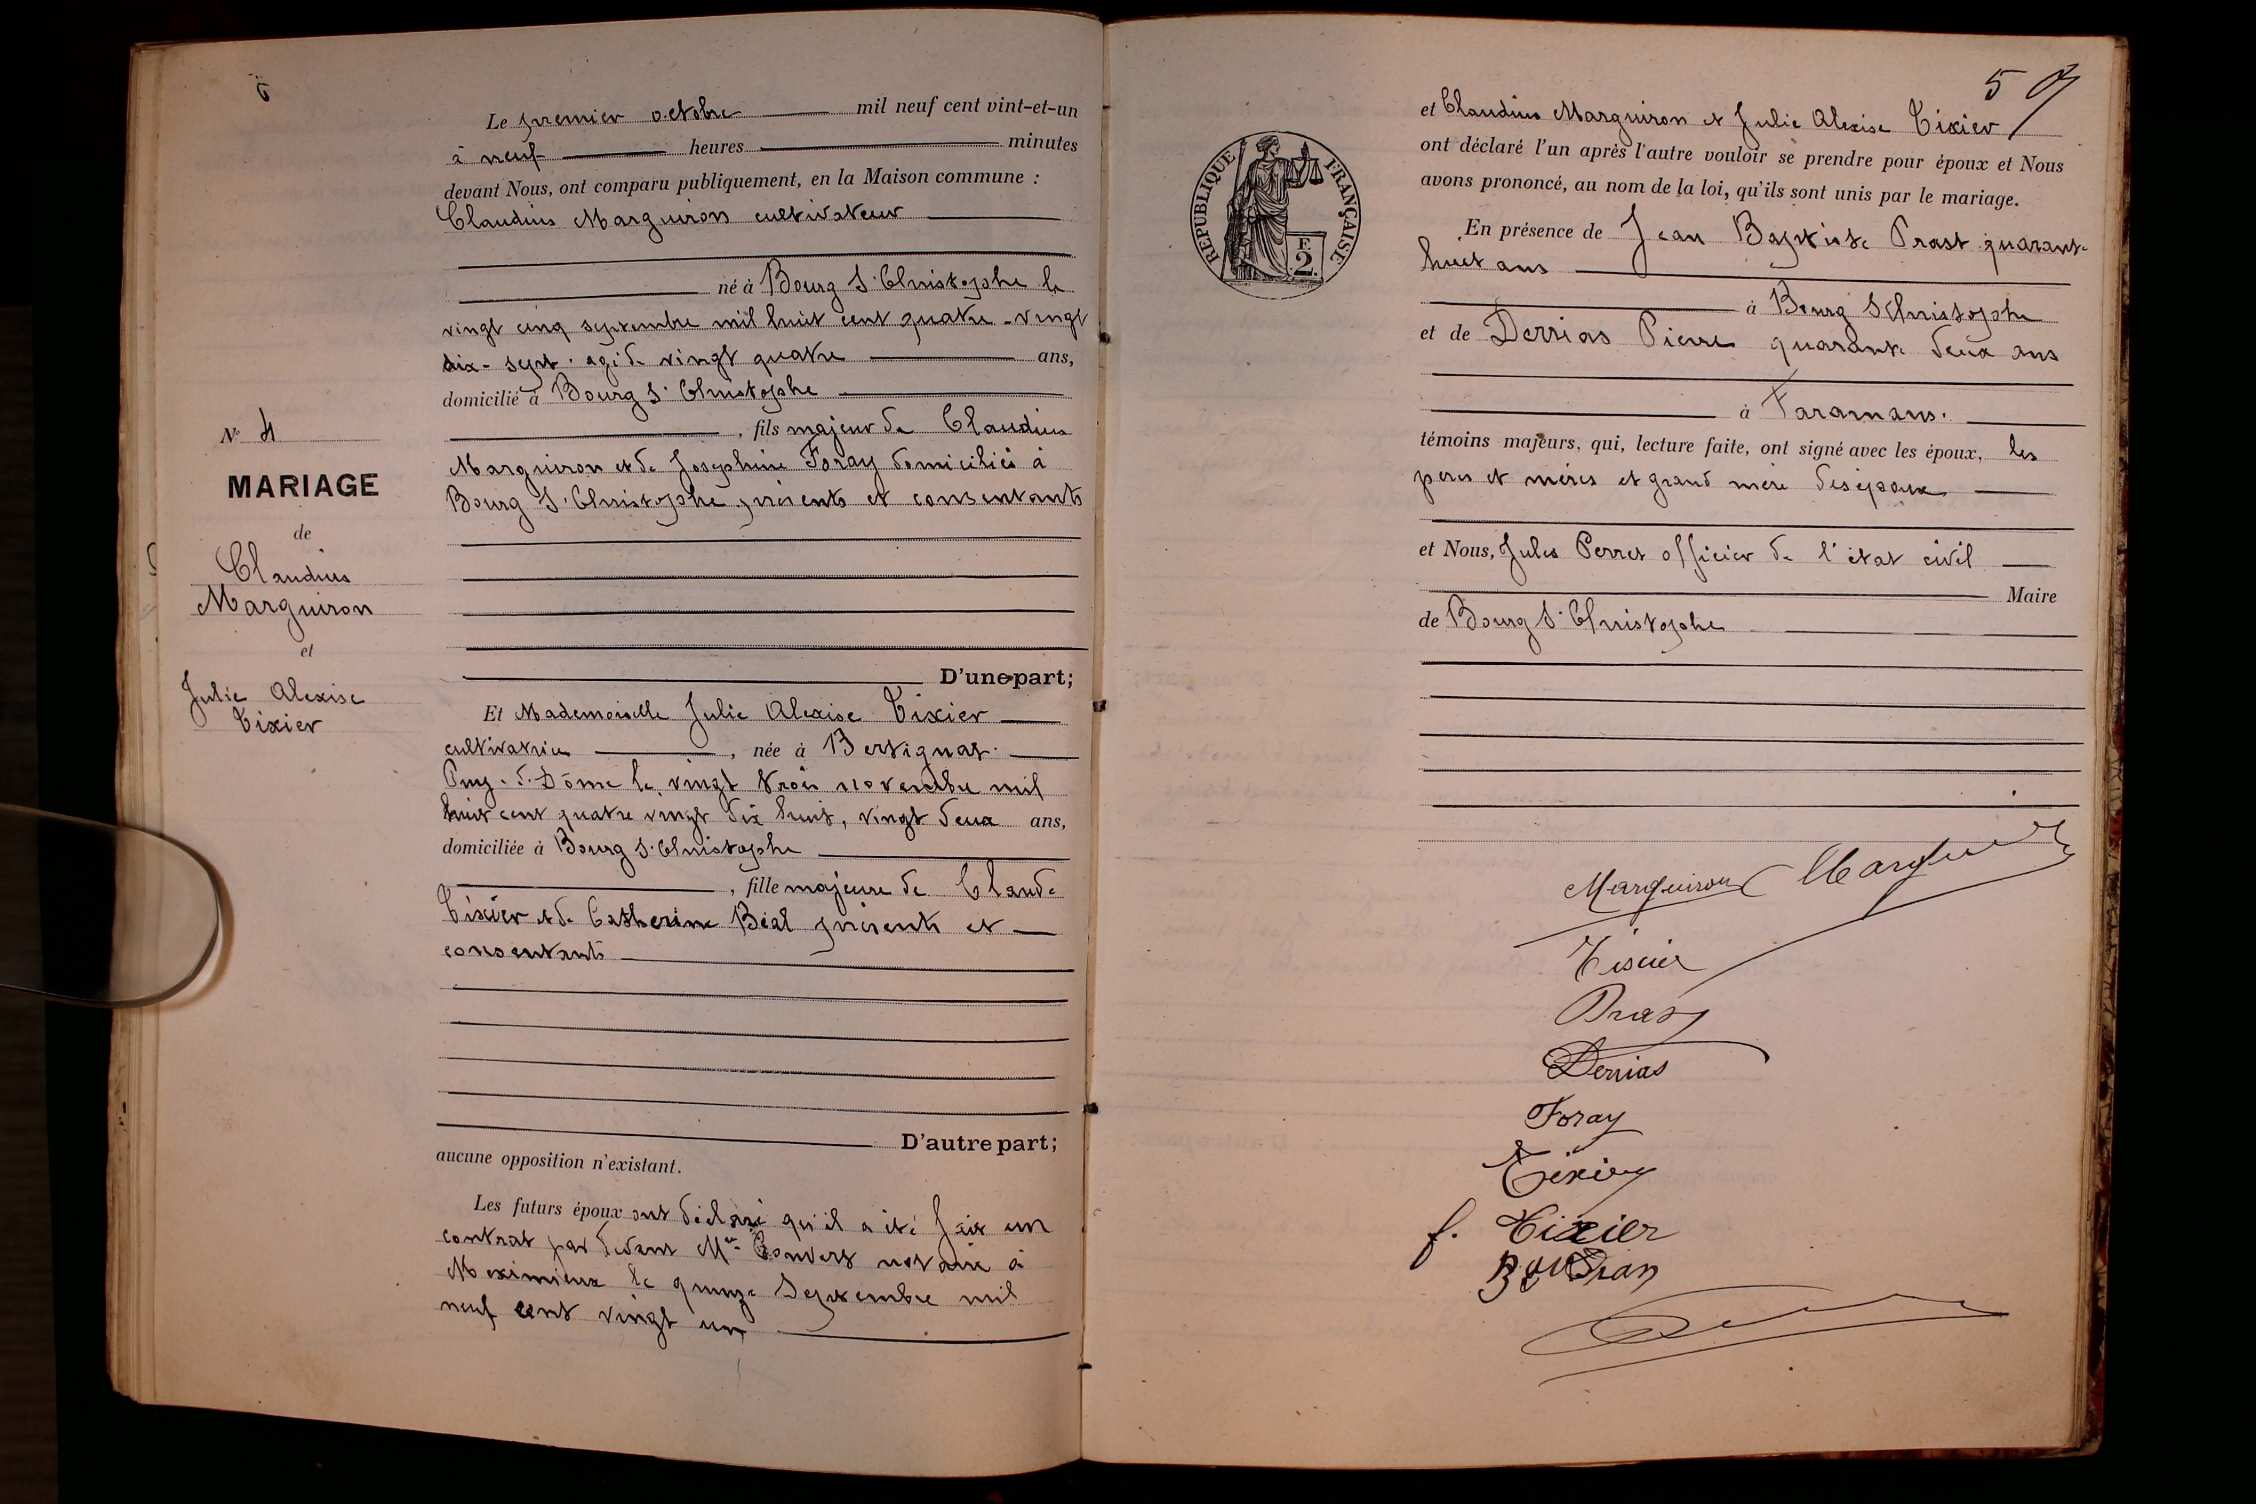 Le premier octobre mil neuf cent vint-et-un
à neuf heures minutes
devant Nous, ont comparu publiquement, en la Maison commune :
Claudius Marguiron cultivateur
né à Bourg St Christophe le
vingt cinq septembre mil huit cent quatre-vingt
dix-sept. agé de vingt quatre ans,
domicilié à Bourg St Christophe
, fils majeur de Claudius
Marguiron et de Joséphine Foray domiciliés à
Bourg St Christophe présents et consentants
No 4
MARIAGE
de
Claudius
Marguiron
et
Julie Alexise
Tixier
D'une part;
Et Mademoiselle Julie Alexise Tixier
cultivatrice , née à Bertignat.
Puy-de-Dôme le vingt trois novembre mil
huit cent quatre vingt dix huit, vingt deux ans,
domiciliée à Bourg St Christophe
, fille majeure de Claude
Tixier et de Catherine Béal présents et
consentants
D'autre part;
aucune opposition n'existant.
Les futurs époux ont déclaré qu'il a été fait un
contrat par devant Me Convert notaire à
Meximieux le quinze Septembre mil
neuf cent vingt un
5
et Claudius Marguiron et Julie Alexise Tixier
ont déclaré l'un après l'autre vouloir se prendre pour époux et Nous
avons prononcé, au nom de la loi, qu'ils sont unis par le mariage.
RÉPUBLIQUE FRANÇAISE
F.
2
En présence de Jean Baptiste Prast quarante
huit ans
à Bourg St Christophe
et de Derrias Pierre quarante deux ans
à Faramans.
témoins majeurs, qui, lecture faite, ont signé avec les époux, les
peres et mères et grand mère des époux
et Nous, Jules Perret officier de l'état civil
Maire
de Bourg St Christophe
Marguiron
Tixier
Prast
Derrias
Foray
Tixier
f. Tixier